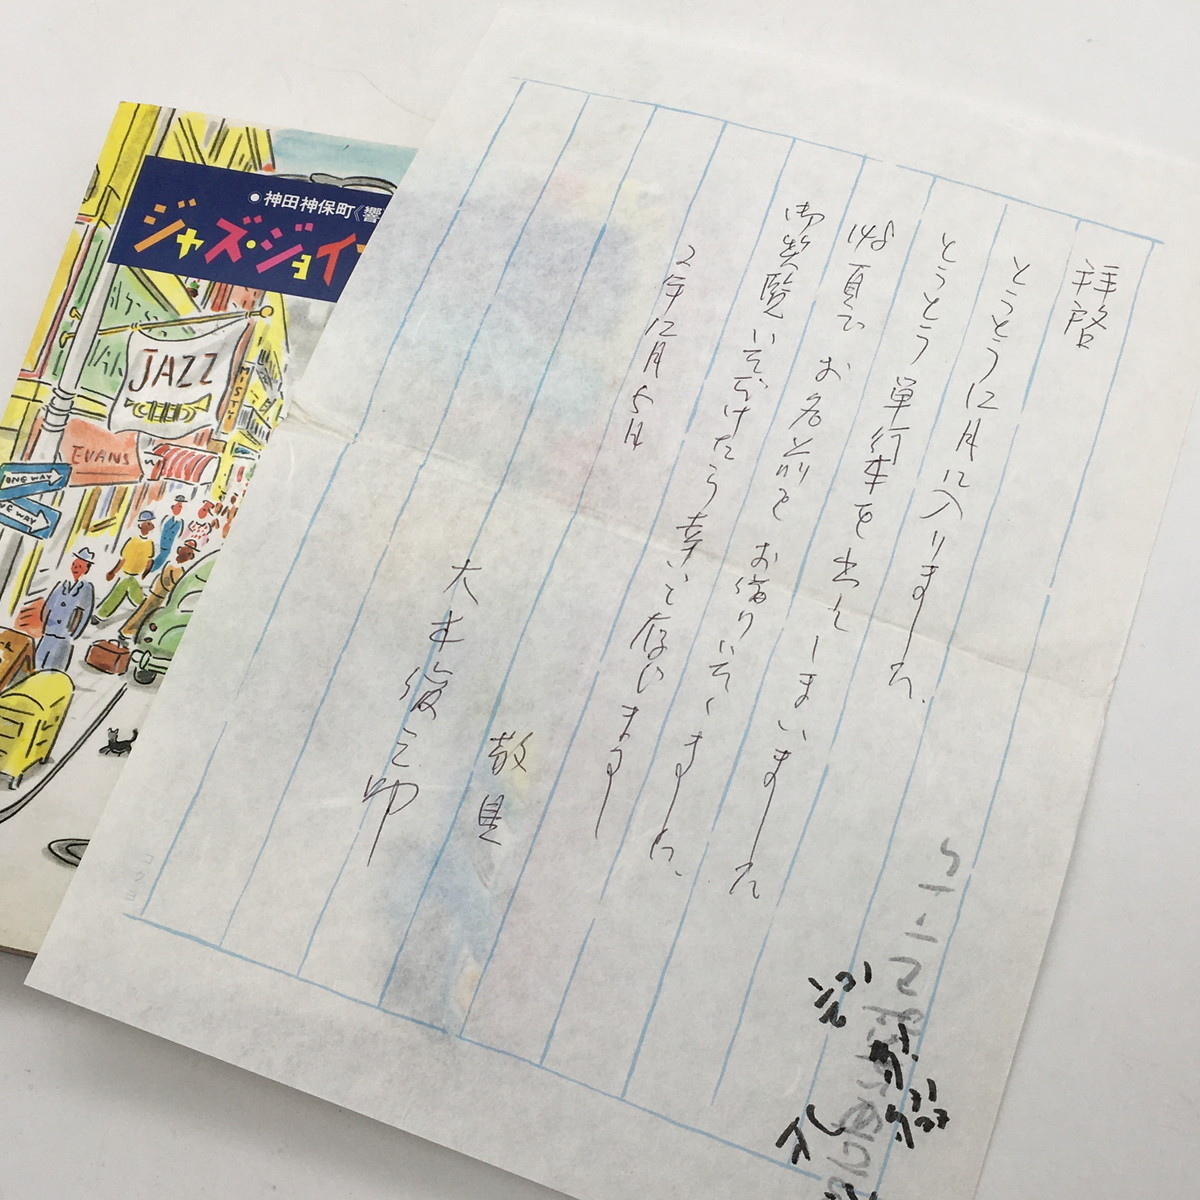 ●神田神保町《響
ジャズ・ジョイ
JAZZ
EVANS
MISTY
ONE WAY
WAY
拝啓
とうとう12月に入りました。
とうとう単行本を出してしまいました
頃でお名前をお借りいたしました。
御笑覧いただけたら幸いと存じます
2年12月5日
敬具
大木俊之助
コクヨ